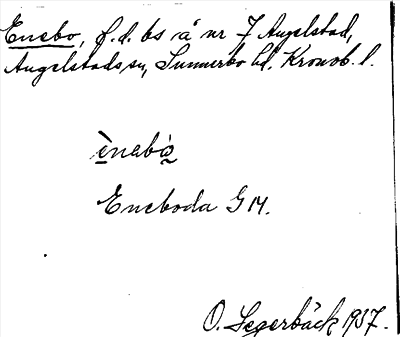 Enebo, f.d. bs å nr 7 Angelstad,
Angelstads sn, Sunnerbo hd, Kronob. l.
ènabò
Eneboda GM.
O. Segerbäck 1937.